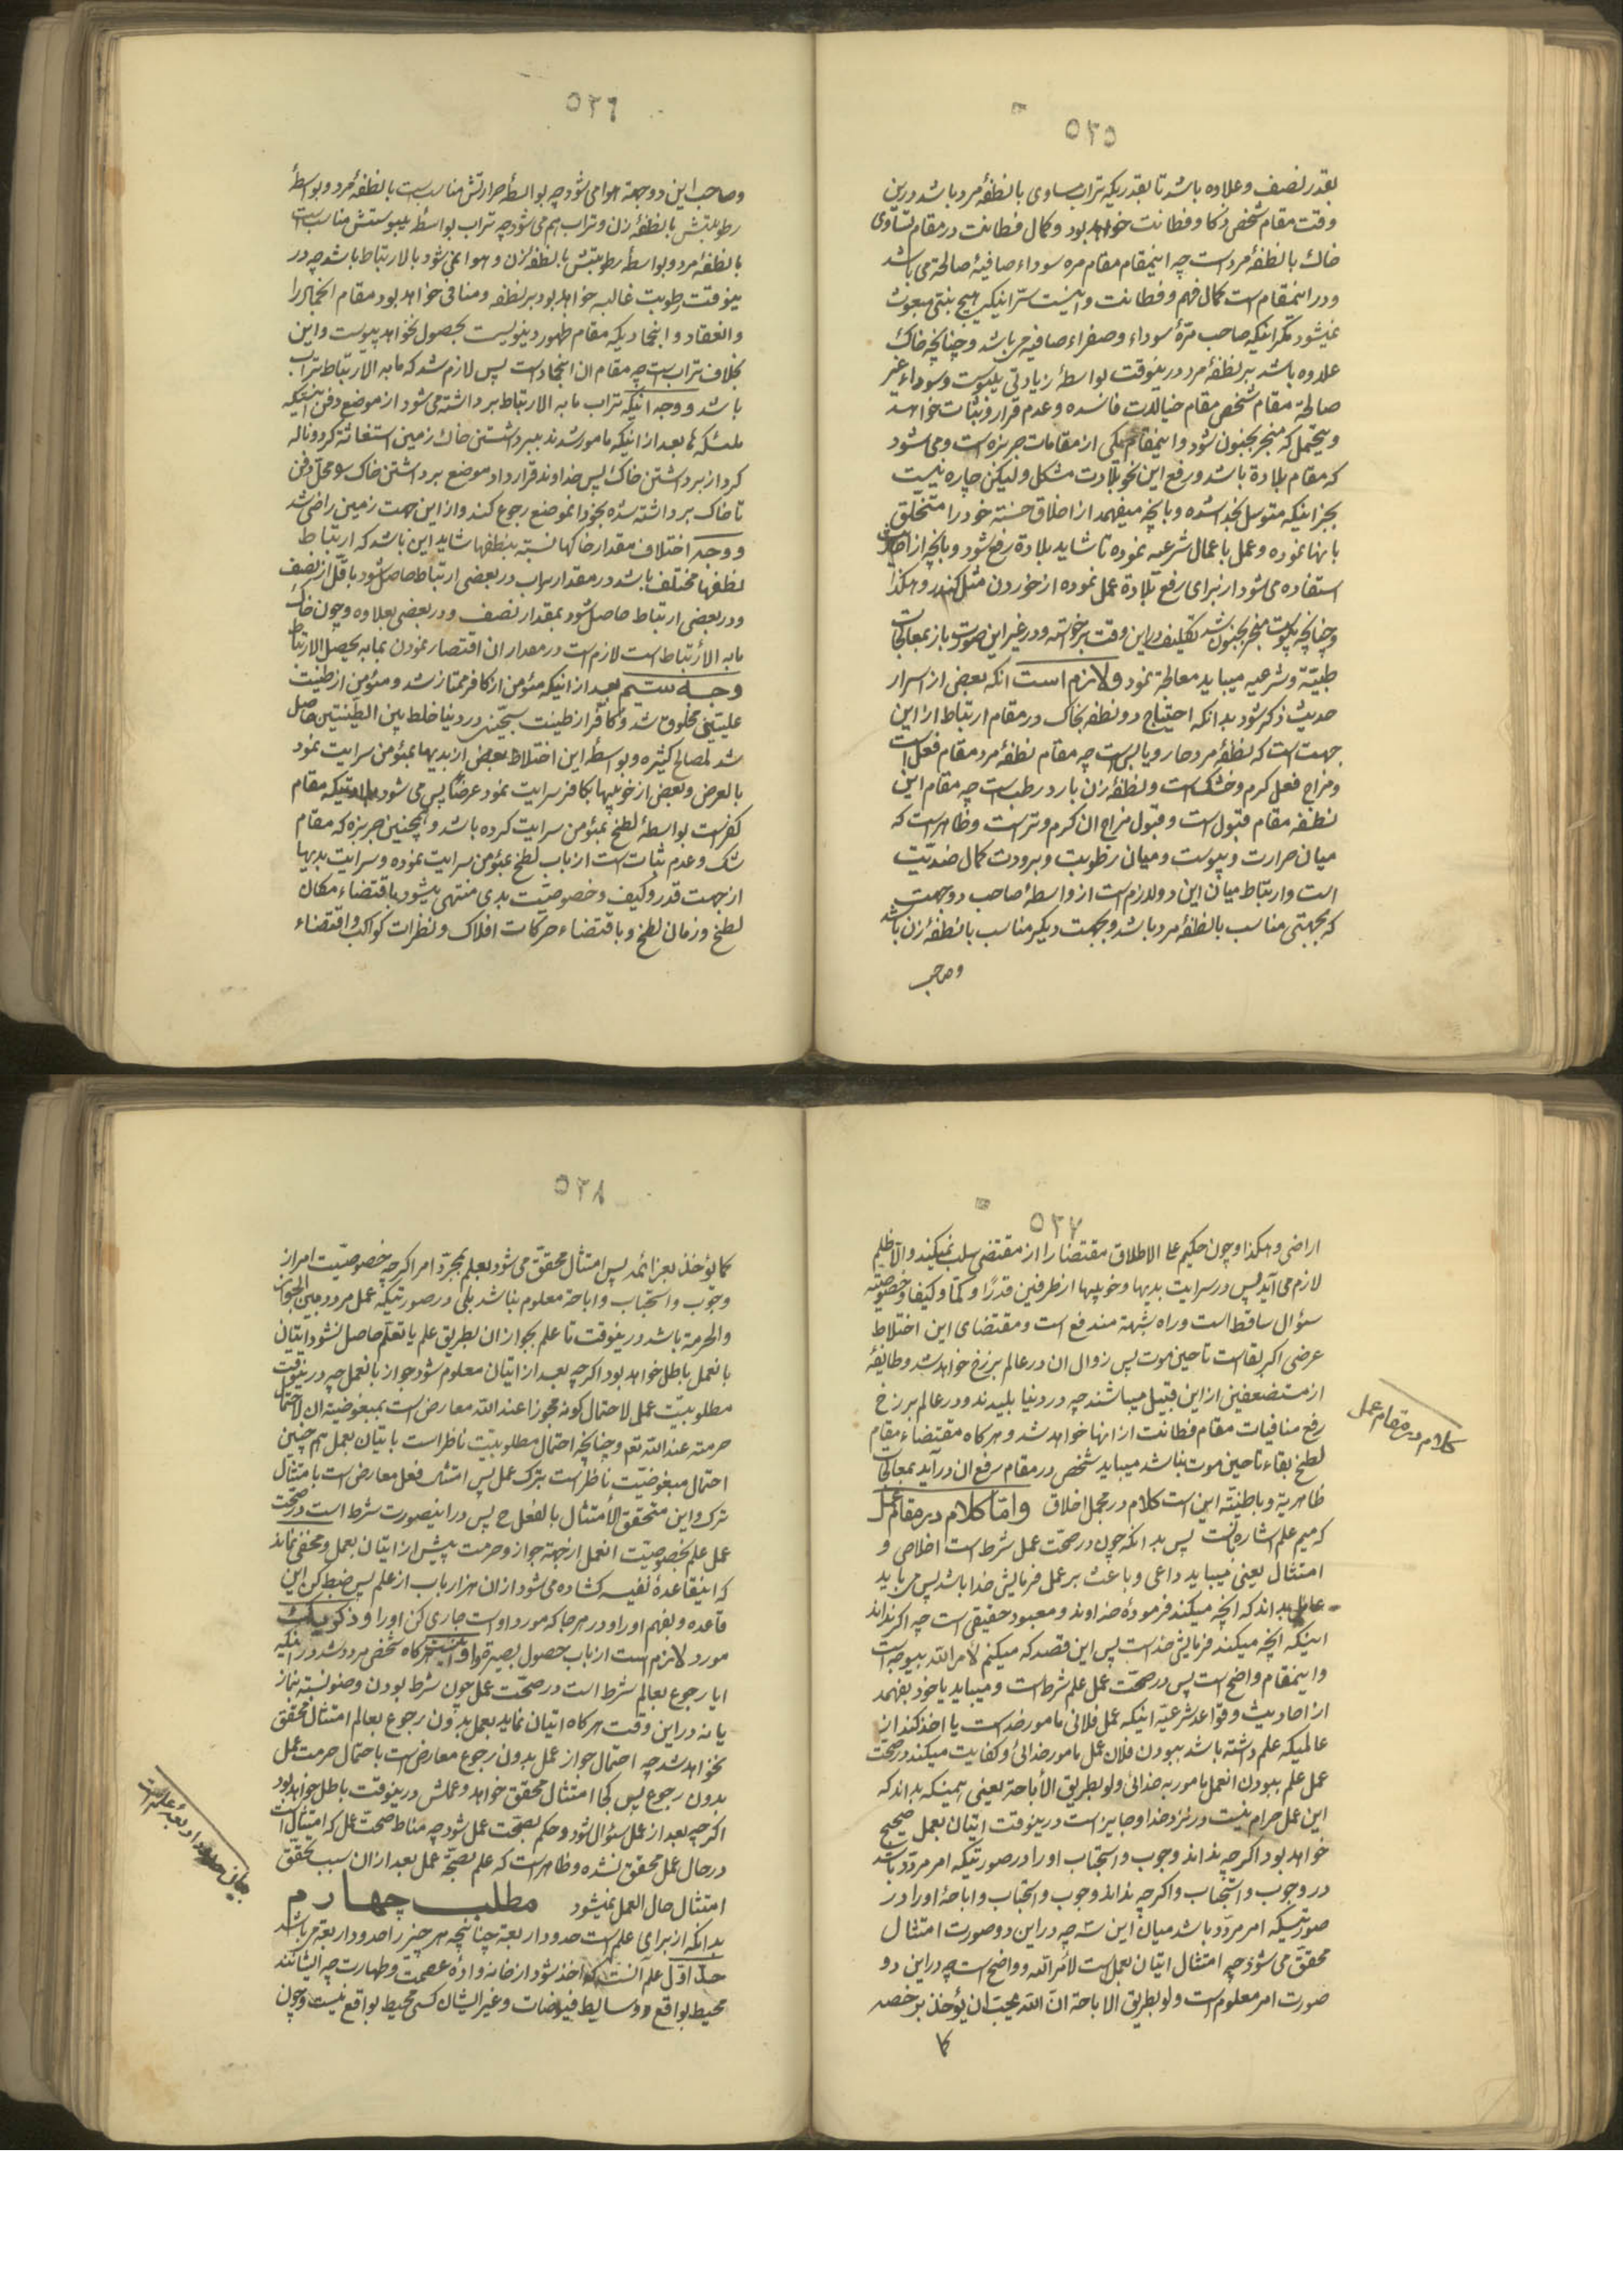 ٥٢٥
بقدر نصف و علاوه باشد تا بقدریکه تراب مساوی با نطفهٔ مرد باشد درین
وقت مقام شخص ذکا و فطانت خواهد بود و کمال فطانت در مقام تساوی
خاک با نطفهٔ مرد است چه اینمقام مقام مره سوداء صافیهٔ صالحة می باشد
و در اینمقام است کمال فهم و فطانت و اینست سرّ اینکه هیچ نبیّ مبعوث
نمیشود مکر اینکه صاحب مرّهٔ سوداء و صفراء صافیه می باشد و چنانچه خاک
علاوه باشد بر نطفهٔ مرد درینوقت بواسطهٔ زیادتی یبوست و سوداء غیر
صالحة مقام شخص مقام خیالات فاسده و عدم قرار و ثبات خواهد
و یحتمل که منجر بجنون شود و اینمقام یکی از مقامات جربزه است و می شود
که مقام بلادة باشد و رفع این نحو بلادت مشکل و لیکن چاره نیست
بجز اینکه متوسل بخدا شده و بانچه میفهمد از اخلاق حسنة خود را متخلق
بانها نموده و عمل باعمال شرعیه نموده تا شاید بلادة رفع شود و بانچه از احادیث
استفاده می شود از برای رفع بلادة عمل نموده از خوردن مثل کندر و هکذا
و چنانچه یبوست منجر بجنون شد تکلیف در این وقت برخواسته و در غیر این صورت باز بمعالجات
طبیّة و شرعیه میباید معالجة نمود و لازم است انکه بعضی از اسرار
حدیث ذکر شود بدانکه احتیاج دو نطفه بخاک در مقام ارتباط از این
جهت است که نطفهٔ مرد حار و یابس است چه مقام نطفهٔ مرد مقام فعل است
و مزاج فعل کرم و خشک است و نطفهٔ زن بارد رطب است چه مقام این
نطفه مقام قبول است و قبول مزاج ان کرم و تر است و ظاهر است که
میان حرارت و یبوست و میان رطوبت و برودت کمال ضدیّت
است و ارتباط میان این دو لازم است از واسطهٔ صاحب دو جهت
که بجهتی مناسب با نطفهٔ مرد باشد و بجهت دیکر مناسب با نطفهٔ زن باشد
و صاحب
٥٢٦
و صاحب این دو جهة هوا می شود چه بواسطهٔ حرارتش مناسب است با نطفهٔ مرد و بواسطهٔ
رطوبتش با نطفهٔ زن و تراب هم می شود چه تراب بواسطهٔ یبوستش مناسب است
با نطفهٔ مرد و بواسطهٔ رطوبتش با نطفهٔ زن و هوا نمی شود ما به الارتباط باشد چه در
ینوقت رطوبت غالبه خواهد بود بر نطفه و منافی خواهد بود مقام انجماد را
و انعقاد و انجمادیکه مقام ظهور دنیویست بحصول نخواهد پیوست و این
بخلاف تراب است چه مقام ان انجماد است پس لازم شد که ما به الارتباط تراب
باشد و وجه اینکه تراب ما به الارتباط برداشته می شود از موضع دفن اینست که
ملئکه ها بعد از اینکه مامور شدند ببرداشتن خاک زمین استغاثة کرد و ناله
کرد از برداشتن خاک پس خداوند قرار داد موضع برداشتن خاک و محل دفن
تا خاک برداشته شده بخود انموضع رجوع کند و از این جهت زمین راضی شد
و وجه اختلاف مقدار خاکها نسبة بنطفها شاید این باشد که ارتباط
نطفها مختلف باشد در مقدار تراب در بعضی ارتباط حاصل شود باقل از نصف
و در بعضی ارتباط حاصل شود بمقدار نصف و در بعضی بعلاوه و چون خاک
ما به الأرتباط است لازم است در مقدار ان اقتصار نمودن بما به یحصل الارتباط
وجه سیّم بعد از انیکه مؤمن از کافر ممتاز شد و مؤمن از طینت
علییّن مخلوق شد و کافر از طینت سجّین در دنیا خلط بین الطینتین حاصل
شد لمصالح کثیره و بواسطهٔ این اختلاط بعضی از بدیها بمؤمن سرایت نمود
بالعرض و بعضی از خوبیها بکافر سرایت نمود عرضاً پس می شود بلادتیکه مقام
کفر است بواسطهٔ لطخ بمؤمن سرایت کرده باشد و همچنین جربزه که مقام
شک و عدم ثبات است از باب لطخ بمؤمن سرایت نموده و سرایت بدیها
از جهت قدر و کیف و خصوصیّت بدی منتهی میشود باقتضاء مکان
لطخ و زمان لطخ و باقتضاء حرکات افلاک و نظرات کواکب و اقتضاء
٥٢٧
اراضی و هکذا و چون حکیم علی الاطلاق مقتضا را از مقتضی سلب نمیکند و الّا ظلم
لازم می آید پس در سرایت بدیها و خوبیها از طرفین قدرًا و کمًّا و کیفا و خصوصیّة
سئوال ساقط است و راه شبهة مندفع است و مقتضای این اختلاط
عرضی اکر بقا است تا حین موت پس زوال ان در عالم برزخ خواهد شد و طایفهٔ
از مستضعفین از این قبیل میباشند چه در دنیا بلیدند و در عالم برزخ
رفع منافیات مقام فطانت از انها خواهد شد و هر کاه مقتضاء مقام
لطخ بقاء تا حین موت نباشد میباید شخص در مقام رفع ان درآید بمعالجات
ظاهریة و باطنیّة این است کلام در مجمل اخلاق و امّا کلام در مقام عمل
که میم علم اشاره بانست پس بدانکه چون در صحّت عمل شرط است اخلاص و
امتثال یعنی میباید داعی و باعث بر عمل فرمایش خدا باشد پس می باید
عامل بداند که انچه میکند فرمودهٔ خداوند و معبود حقیقی است چه اکر نداند
اینکه انچه میکند فرمایش خداست پس این قصد که میکنم لامر الله بیوجه است
و اینمقام واضح است پس در صحّت عمل علم شرط است و میباید یا خود بفهمد
از احادیث و قواعد شرعیّه اینکه عمل فلانی مامور خداست یا اخذ کند از
عالمیکه علم داشته باشد ببودن فلان عمل مامور خدائی و کفایت میکند در صحّت
عمل علم ببودن انعمل مامور به خدائی و لو بطریق الأباحة یعنی همینکه بداند که
این عمل حرام نیست در نزد خدا و جایز است درینوقت اتیان بعمل صحیح
خواهد بود اکر چه نداند وجوب و استحباب او را در صورتیکه امر مردّد باشد
در وجوب و استحباب و اکر چه نداند وجوب و استحباب و اباحهٔ او را در
صورتیکه امر مردّد باشد میان این سه چه در این دو صورت امتثال
محقّق می شود چه امتثال اتیان بعمل است لأمر الله و واضح است چه در این دو
صورت امر معلوم است و لو بطریق الاباحة انّ الله یحبّ ان یؤخذ برخصه
کما
کلام در مقام عمل
٥٢٨
کما یؤخذ بعزائمه پس امتثال محقّق می شود بعلم بمجرّد امر اکر چه خصوصیّت امر از
وجوب و استحباب و اباحة معلوم نباشد بلی در صورتیکه عمل مردد بین الجواز
و الحرمة باشد درینوقت تا علم بجواز ان بطریق علم یا تعلّم حاصل نشود اتیان
بانعمل باطل خواهد بود اکر چه بعد از اتیان معلوم شود جواز بانعمل چه درینوقت
مطلوبیّت عمل لاحتمال کونه مجوزا عند الله معارض است بمبغوضیّة ان لاحتمال
حرمته عند الله تعم و چنانچه احتمال مطلوبیّت ناظر است باتیان بعمل هم چنین
احتمال مبغوضیّت ناظر است بترک عمل پس امتثال فعل معارض است بامتثال
ترک و این متحقق الأمتثال بالفعل ح پس در اینصورت شرط است در صحّت
عمل علم بخصوصیّت انعمل از جهة جواز و حرمت پیش از اتیان بعمل و مخفی نماند
که اینقاعدهٔ نفیسه کشاده می شود از ان هزار باب از علم پس ضبط کن این
قاعده و بفهم او را و در هر جا که مورد او است جاری کن او را و ذکر یک
مورد لازم است از باب حصول بصیرة و ان اینست هر کاه شخص مردد شد در اینکه
ایا رجوع بعالم شرط است در صحّت عمل چون شرط بودن وضو نسبة بنماز
یا نه در این وقت هر کاه اتیان نماید بعمل بدون رجوع بعالم امتثال محقق
نخواهد شد چه احتمال جواز عمل بدون رجوع معارض است باحتمال حرمت عمل
بدون رجوع پس کجا امتثال محقق خواهد و عملش درینوقت باطل خواهد بود
اکر چه بعد از عمل سئوال شود و حکم بصحّت عمل شود چه مناط صحّت عمل که امتثال است
در حال عمل محقق نشده و ظاهر است که علم بصحّة عمل بعد از ان سبب تحقق
امتثال حال العمل نمیشود مطلب چهارم
بدانکه از برای علم است حدود اربعة چنانچه هر چیز را حدود اربعة می باشد
حدّ اوّل علم آنست که اخذ شود از خانه وادهٔ عصمت و طهارت چه ایشانند
محیط بواقع و وسایط فیوضات و غیر ایشان کسی محیط بواقع نیست و چون
حدود اربعهٔ علم است